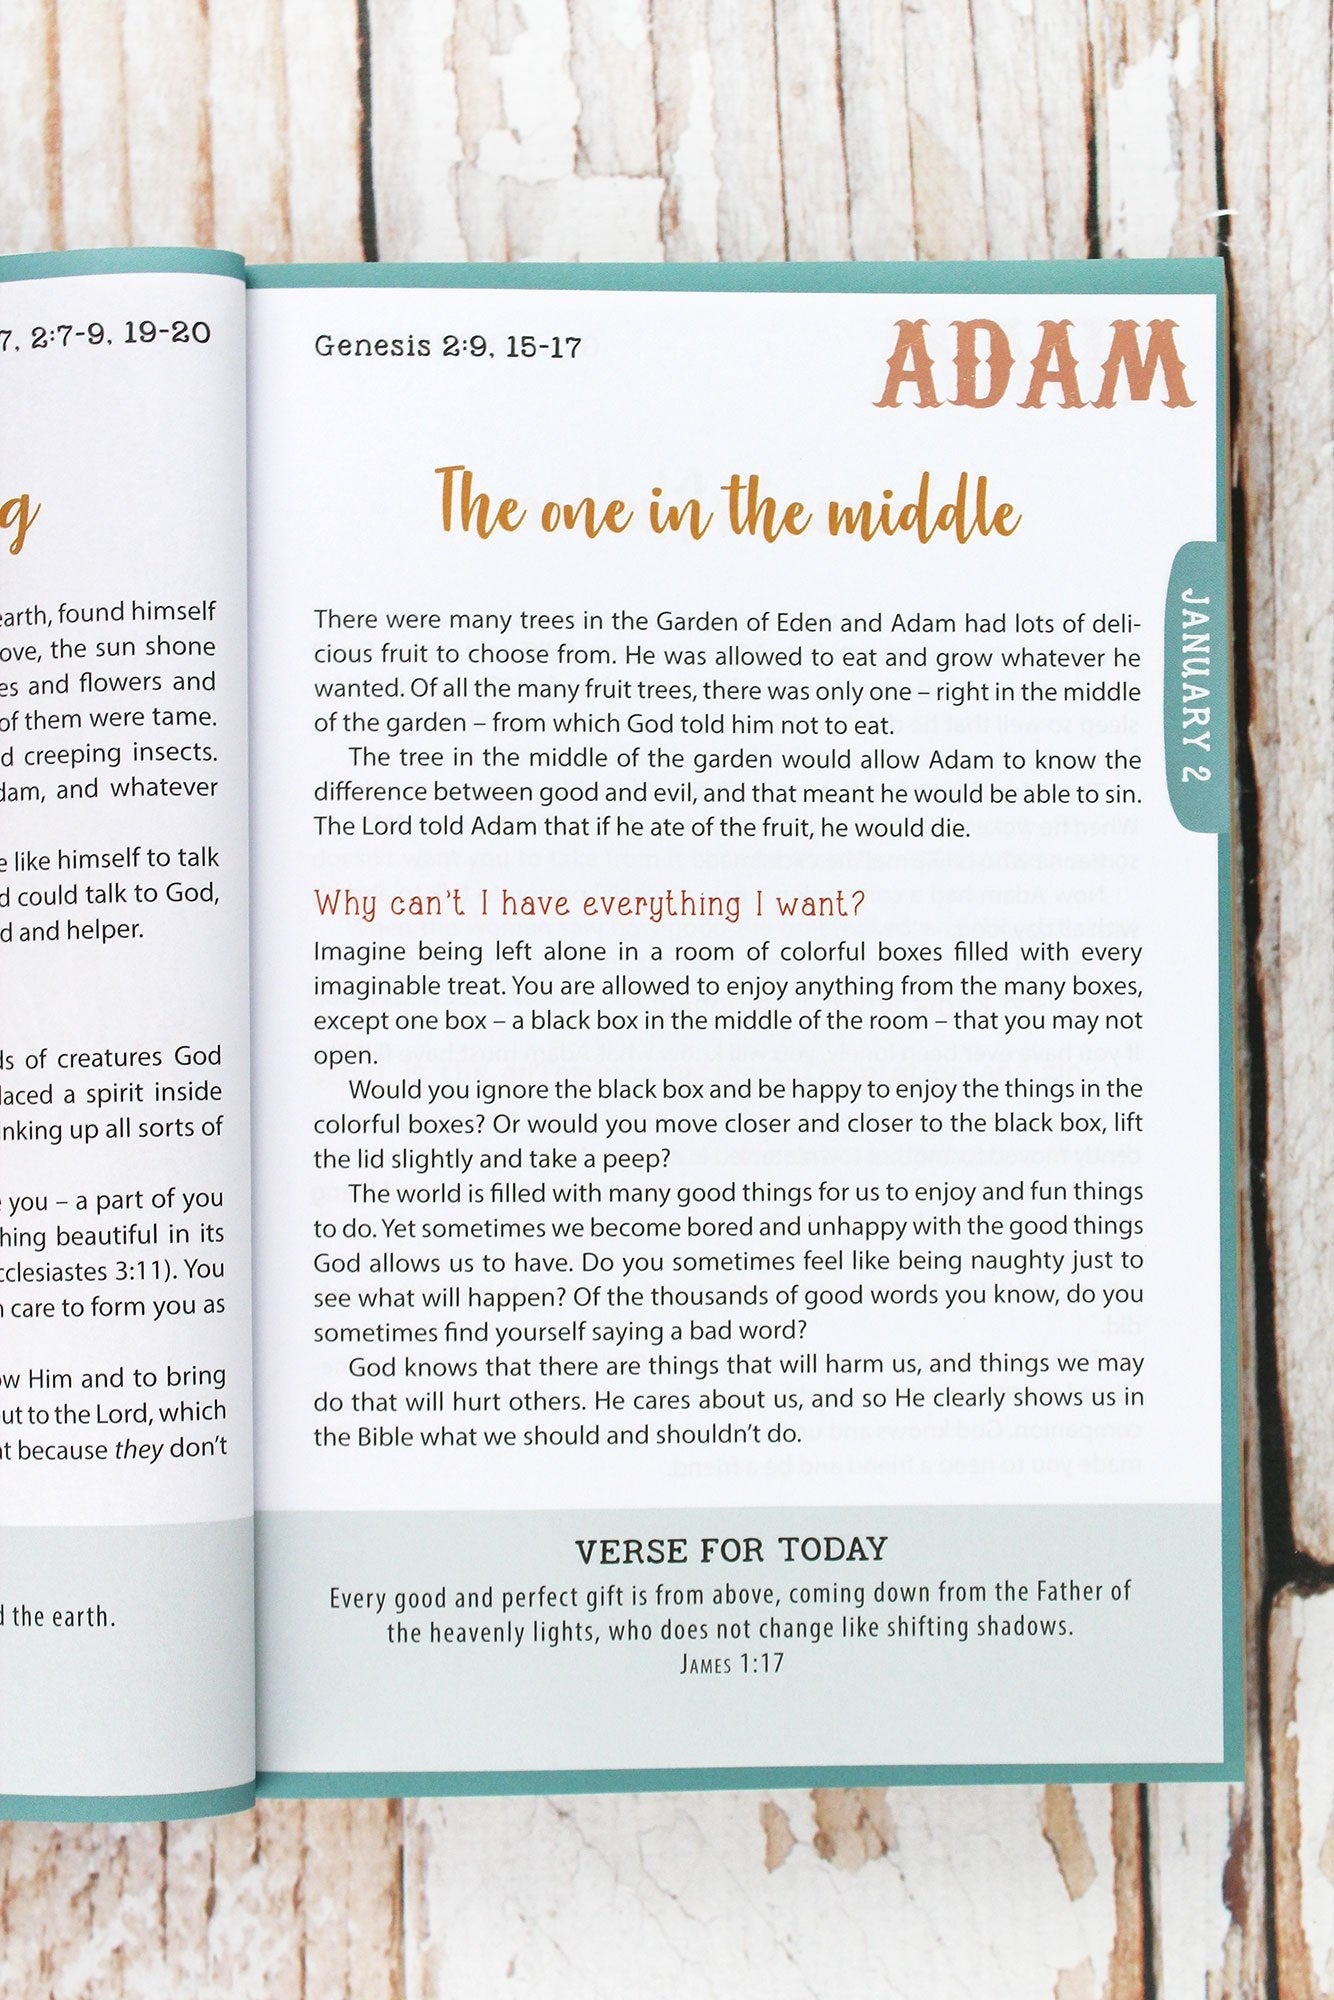 7, 2:7-9, 19-20
g
earth, found himself
ove, the sun shone
es and flowers and
of them were tame.
d creeping insects.
dam, and whatever
e like himself to talk
d could talk to God,
d and helper.
ds of creatures God
laced a spirit inside
inking up all sorts of
e you – a part of you
hing beautiful in its
cclesiastes 3:11). You
n care to form you as
ow Him and to bring
out to the Lord, which
at because they don't
d the earth.
Genesis 2:9, 15-17
ADAM
The one in the middle
JANUARY 2
There were many trees in the Garden of Eden and Adam had lots of deli-
cious fruit to choose from. He was allowed to eat and grow whatever he
wanted. Of all the many fruit trees, there was only one – right in the middle
of the garden – from which God told him not to eat.
The tree in the middle of the garden would allow Adam to know the
difference between good and evil, and that meant he would be able to sin.
The Lord told Adam that if he ate of the fruit, he would die.
Why can't I have everything I want?
Imagine being left alone in a room of colorful boxes filled with every
imaginable treat. You are allowed to enjoy anything from the many boxes,
except one box – a black box in the middle of the room – that you may not
open.
Would you ignore the black box and be happy to enjoy the things in the
colorful boxes? Or would you move closer and closer to the black box, lift
the lid slightly and take a peep?
The world is filled with many good things for us to enjoy and fun things
to do. Yet sometimes we become bored and unhappy with the good things
God allows us to have. Do you sometimes feel like being naughty just to
see what will happen? Of the thousands of good words you know, do you
sometimes find yourself saying a bad word?
God knows that there are things that will harm us, and things we may
do that will hurt others. He cares about us, and so He clearly shows us in
the Bible what we should and shouldn't do.
VERSE FOR TODAY
Every good and perfect gift is from above, coming down from the Father of
the heavenly lights, who does not change like shifting shadows.
JAMES 1:17